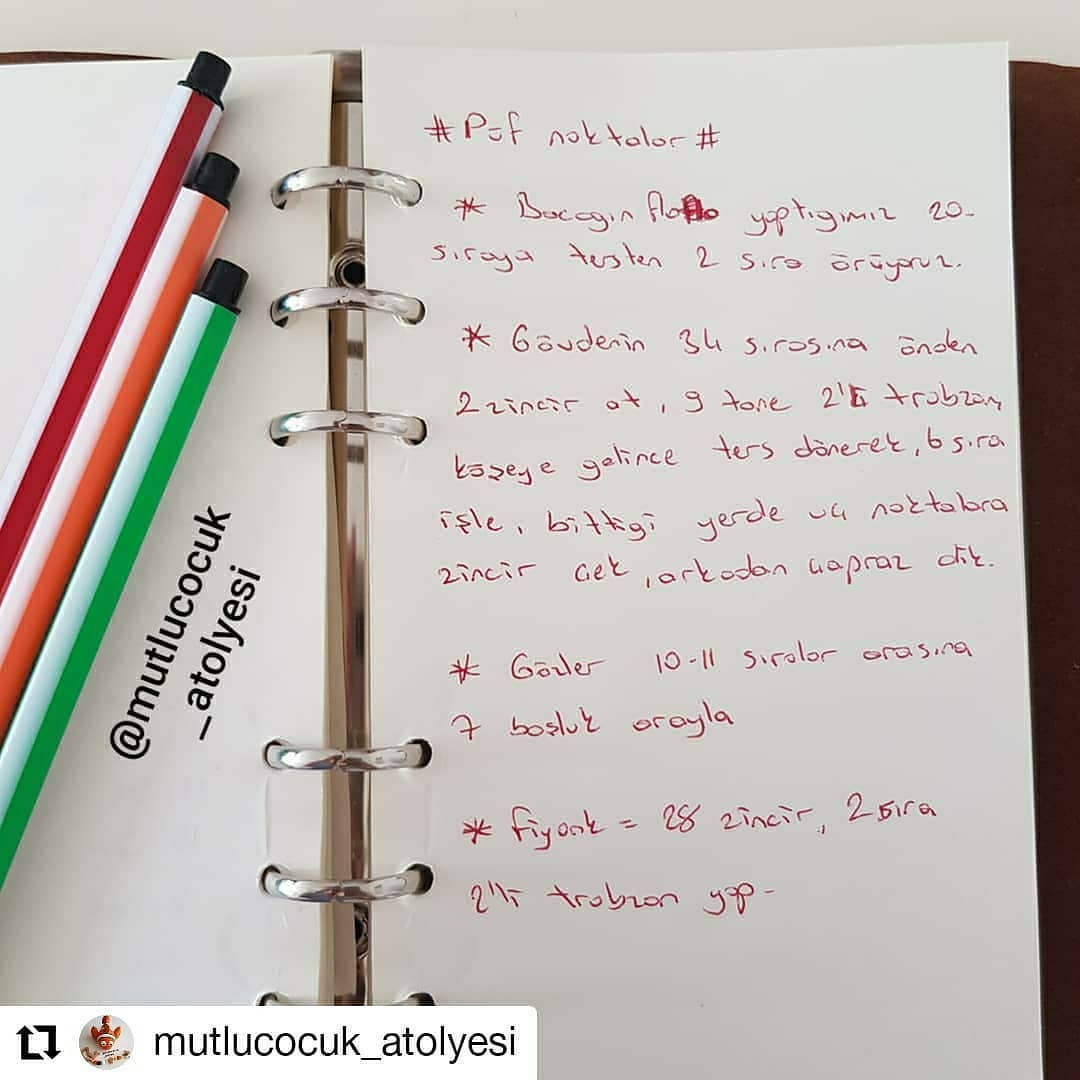 # Püf noktalar #
* Bacağın flo yaptığımız 20.
sıraya tersten 2 sıra örüyoruz.
* Gövdenin 34 sırasına önden
2 zincir at, 9 tane 2'li trabzan,
köşeye gelince ters dönerek, 6 sıra
işle, bittiği yerde uç noktalara
zincir çek, arkadan çapraz dik.
* Gözler 10-11 sıralar arasına
7 boşluk arayla
* fiyonk = 28 zincir, 2 sıra
2'li trabzan yap -
@mutlucocuk
_atolyesi
mutlucocuk_atolyesi